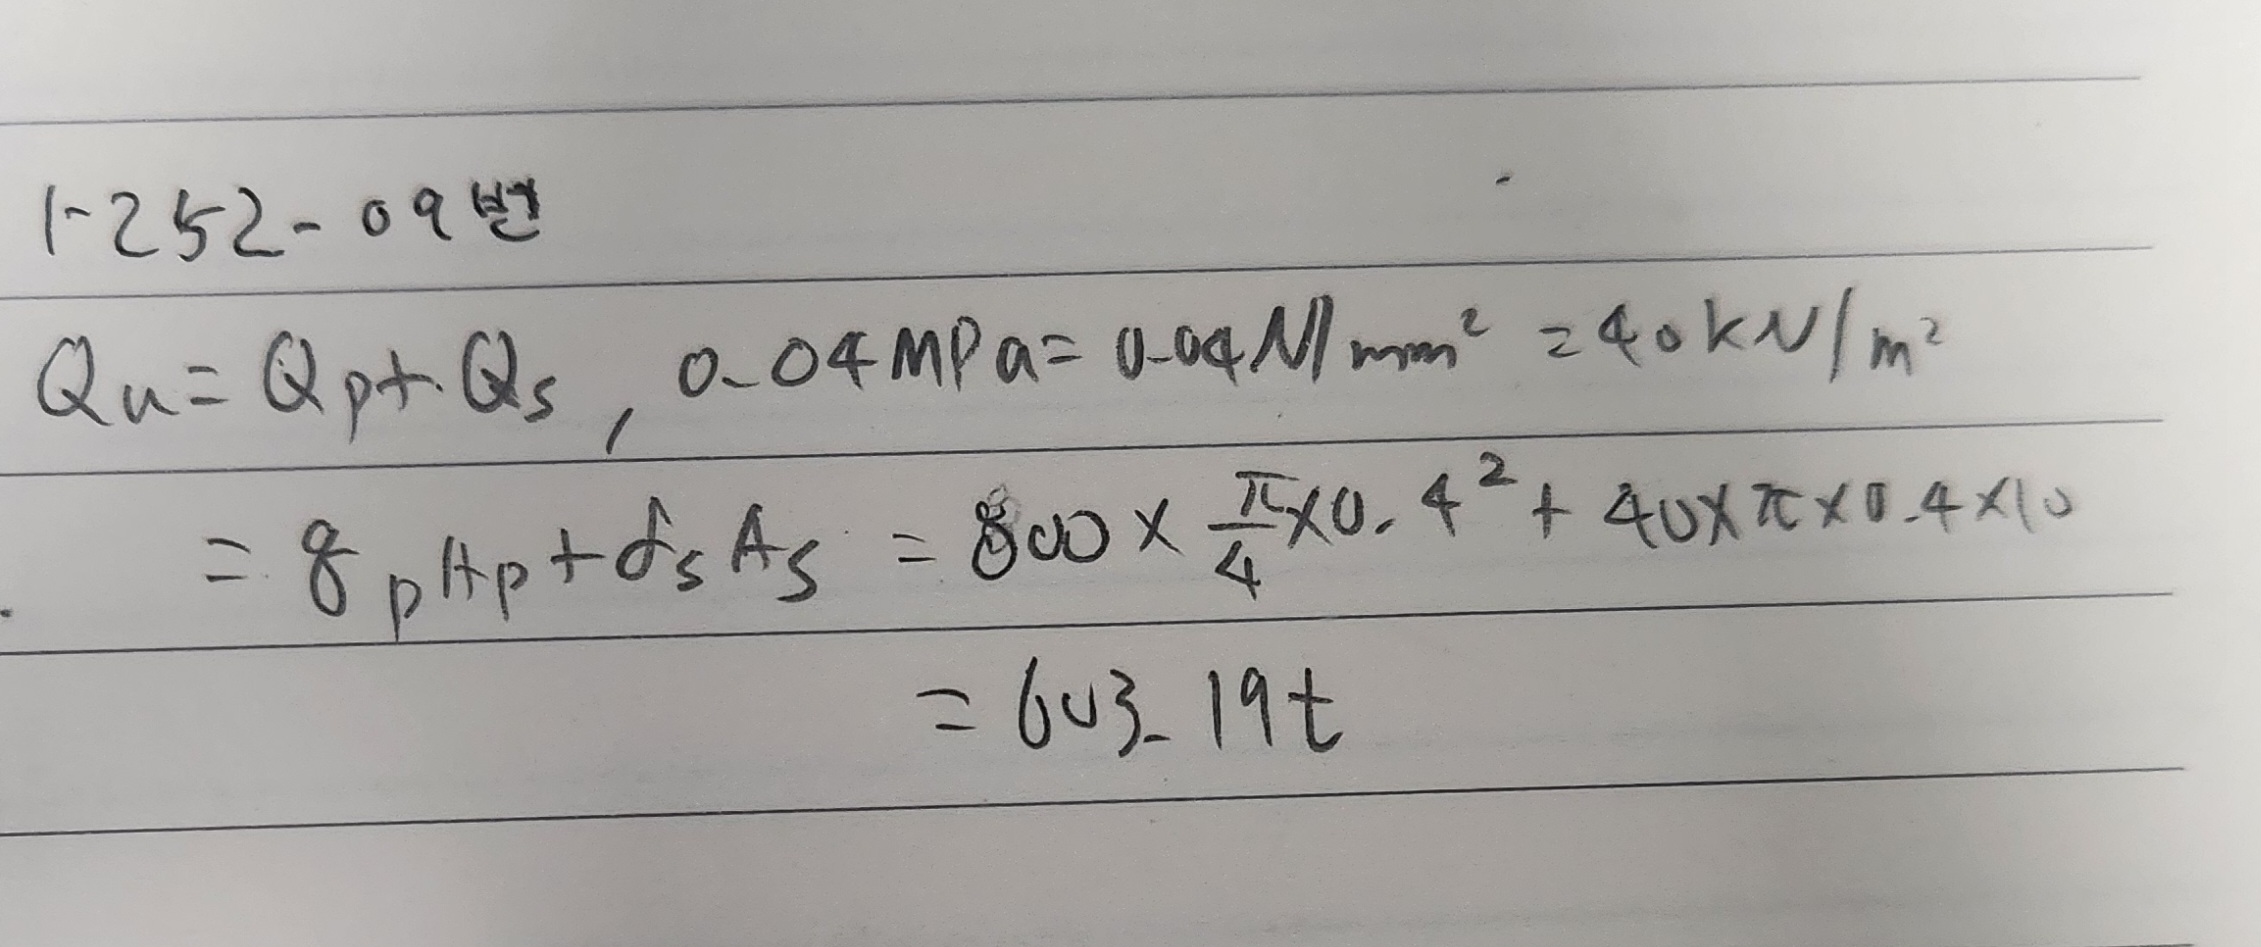 1-252-09번
Qu = Qp + Qs, 0.04MPa = 0.04N/mm² = 40kN/m²
= qpAp + fsAs = 800 × π/4 × 0.4² + 40×π×0.4×10
= 603.19t